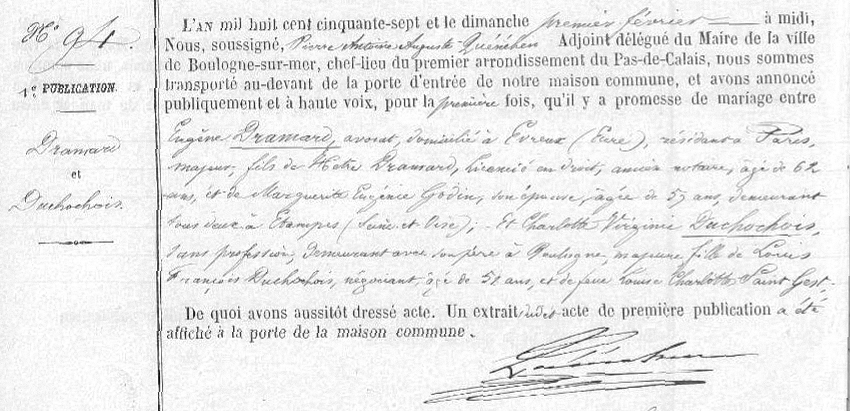 N° 94
1e PUBLICATION.
Dramard
et
Duchochois.
L'AN mil huit cent cinquante-sept et le dimanche premier février à midi,
Nous, soussigné, Pierre Antoine Auguste Quénéhen Adjoint délégué du Maire de la ville
de Boulogne-sur-mer, chef-lieu du premier arrondissement du Pas-de-Calais, nous sommes
transporté au-devant de la porte d'entrée de notre maison commune, et avons annoncé
publiquement et à haute voix, pour la première fois, qu'il y a promesse de mariage entre
Eugène Dramard, avocat, domicilié à Evreux (Eure), résidant à Paris,
majeur, fils de Dramard, Licencié en droit, ancien notaire, âgé de 62
ans, et de Marguerite Eugénie Godin, son épouse, âgée de 57 ans, demeurant
tous deux à Etampes (Seine et Oise); Et Charlotte Virginie Duchochois,
sans profession, demeurant avec son père à Boulogne, majeure, fille de Louis
François Duchochois, négociant, âgé de 51 ans, et de feue Louise Charlotte Saint Gest.
De quoi avons aussitôt dressé acte. Un extrait dudit acte de première publication a été
affiché à la porte de la maison commune.